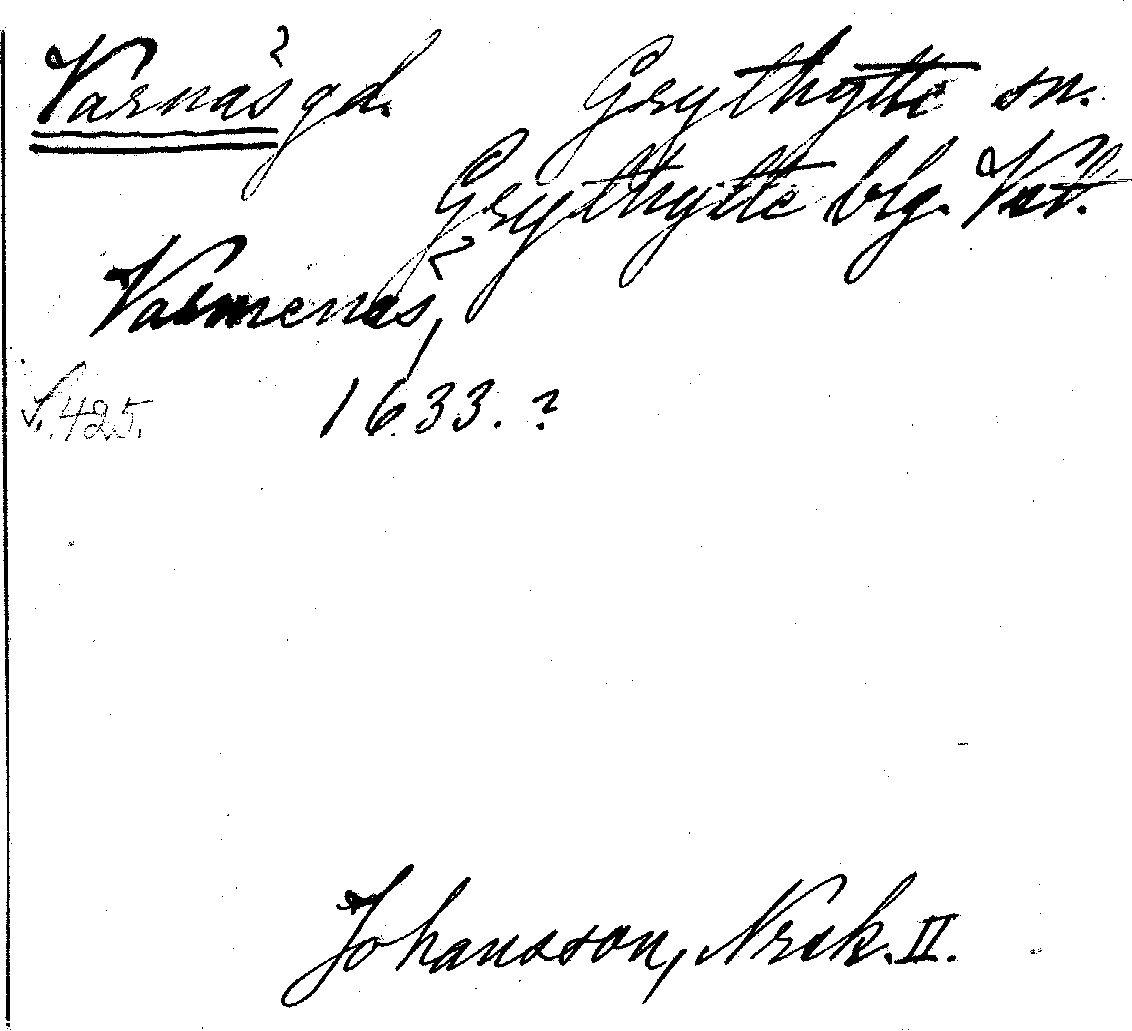 Varnäs gd. Grythytte sn.
Grythytte blg. Vstl.
Varmenäs,
S. 425. 1633. ?
Johansson, Nrck. II.